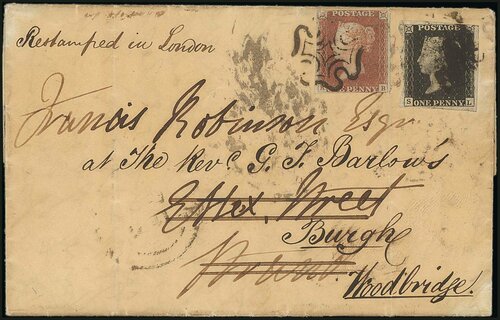 Restamped in London
POSTAGE
ONE PENNY B
POSTAGE
S ONE PENNY L
Francis Robinson Esqr
at The Revd G. F. Barlow's
Essex Street
Burgh
Strand
Woodbridge.